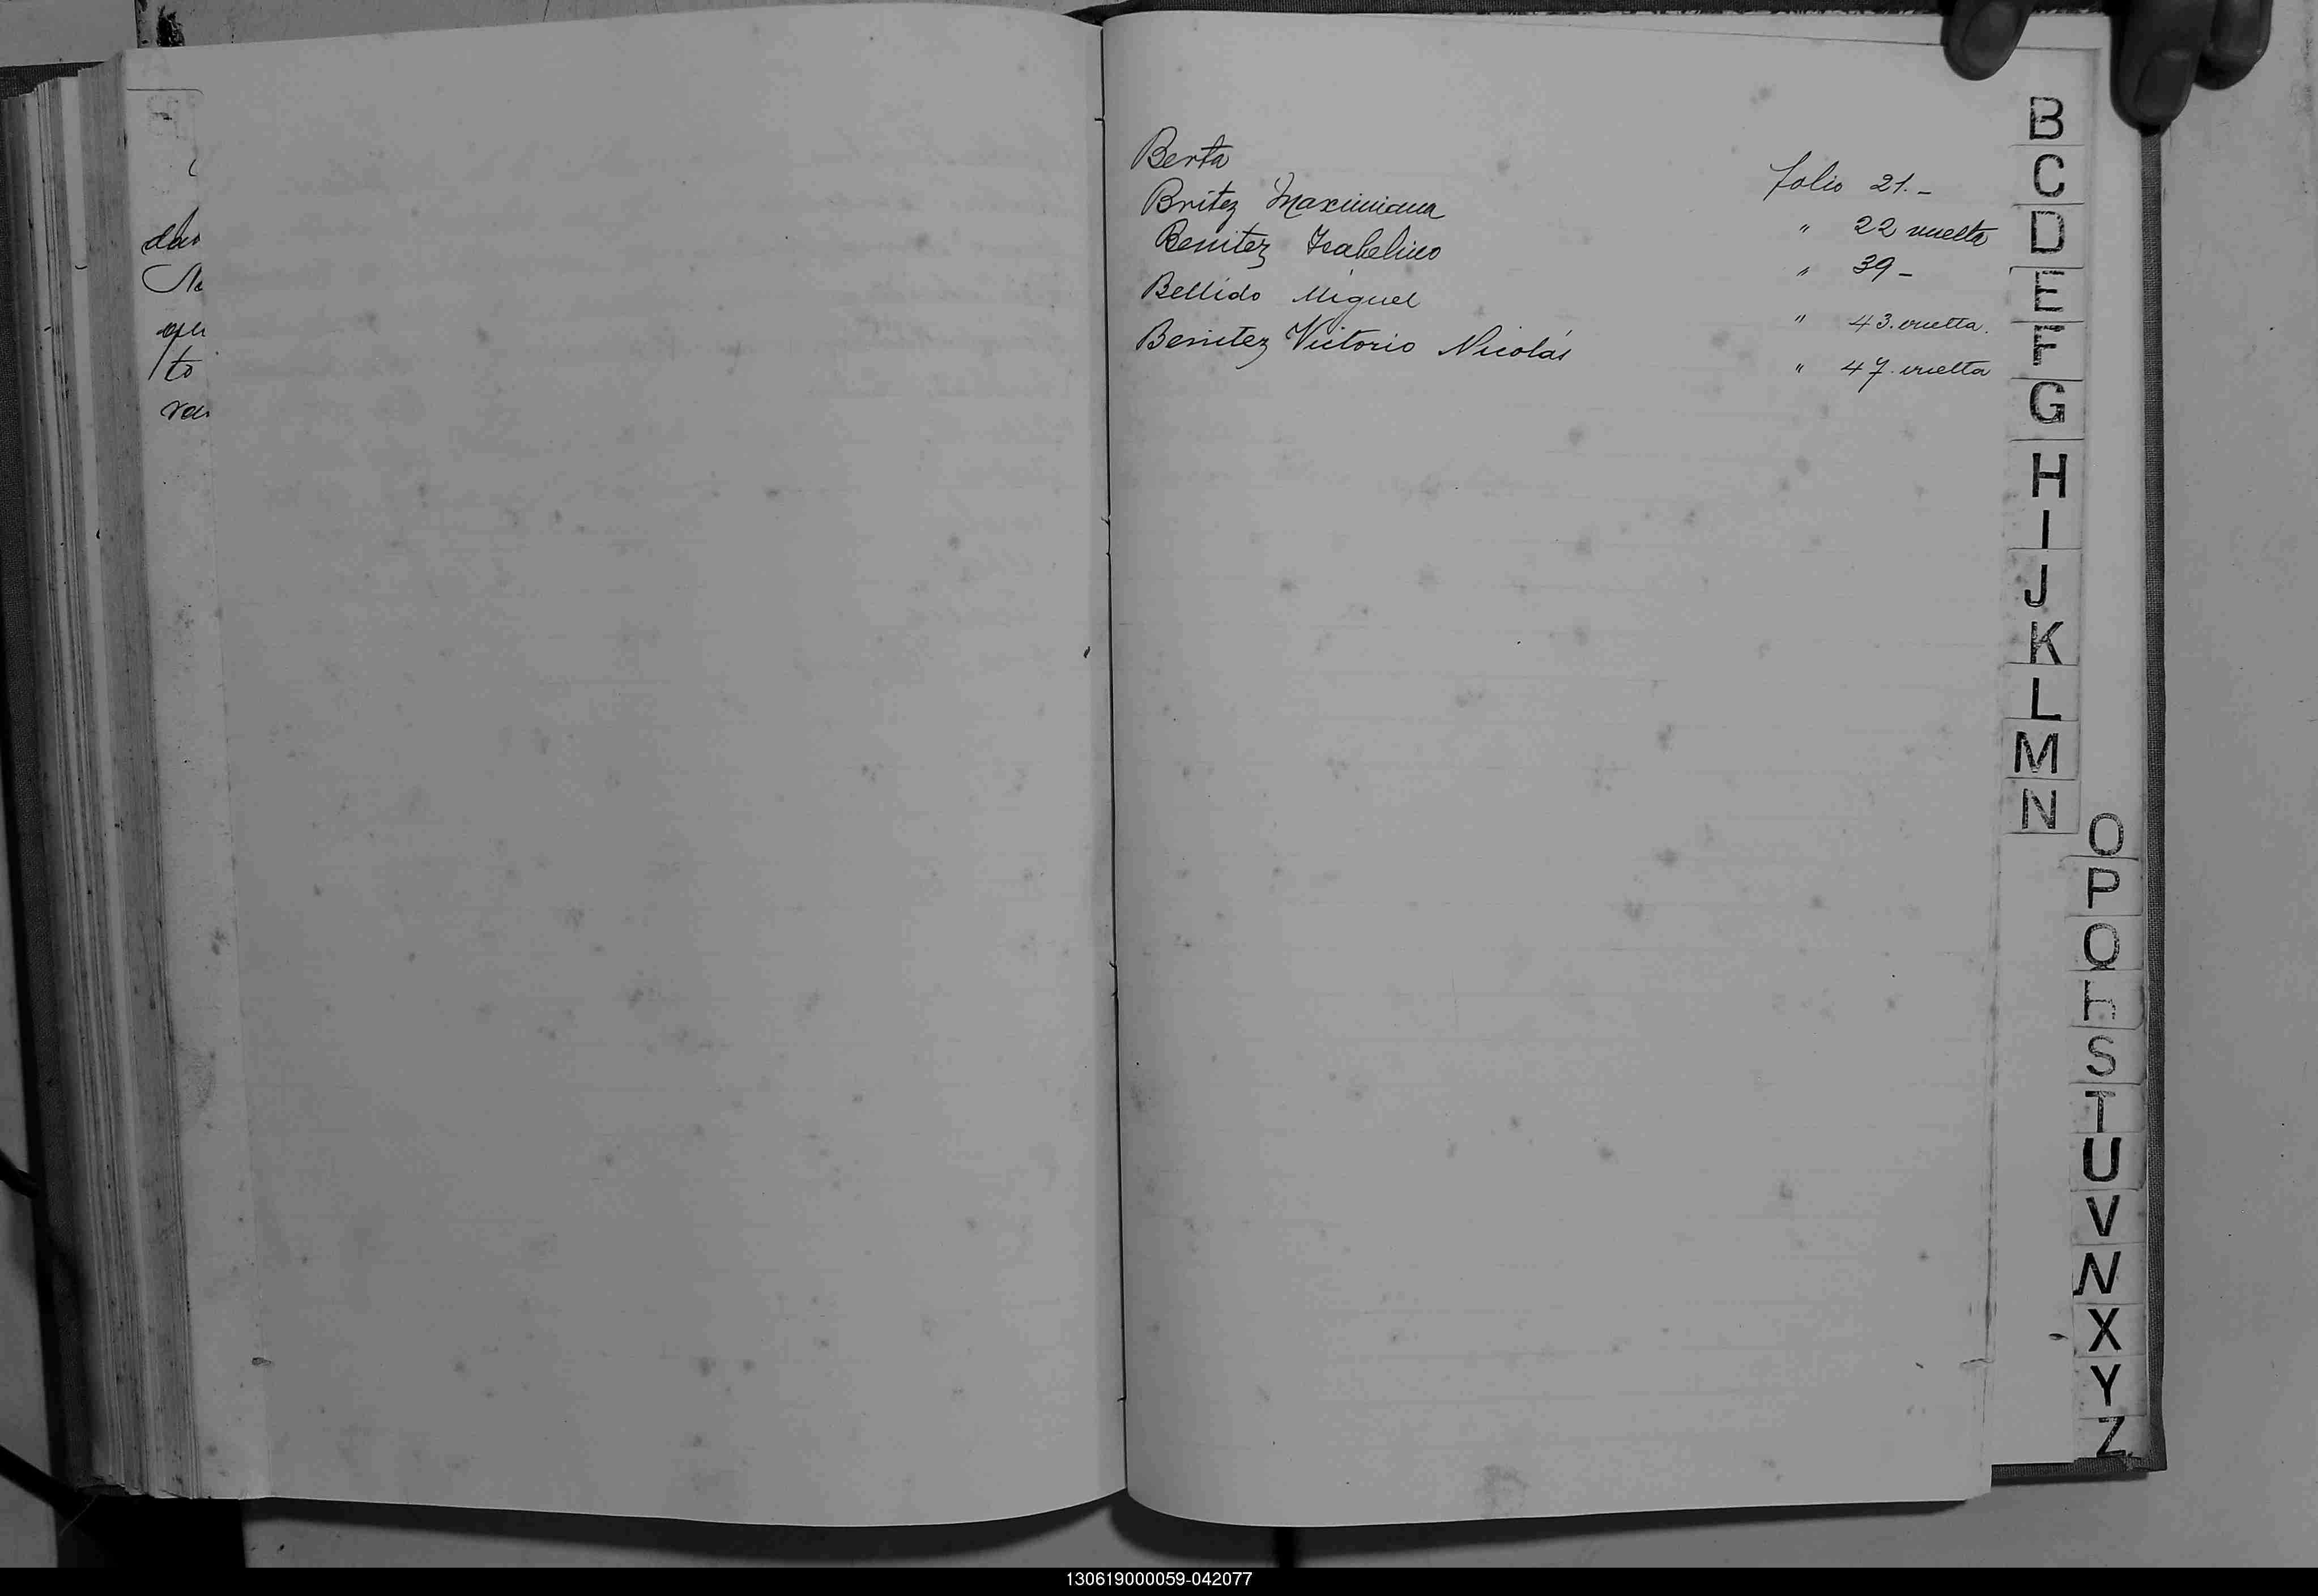 das
to
Berta folio 21.-
Britez Maximiana " 22 vuelta
Benitez Isabelino " 39-
Bellido Miguel " 43. vuelta.
Benitez Victorio Nicolás " 47. vuelta
B
C
D
E
F
G
H
I
J
K
L
M
N
O
P
Q
S
T
U
V
X
Y
Z
130619000059-042077